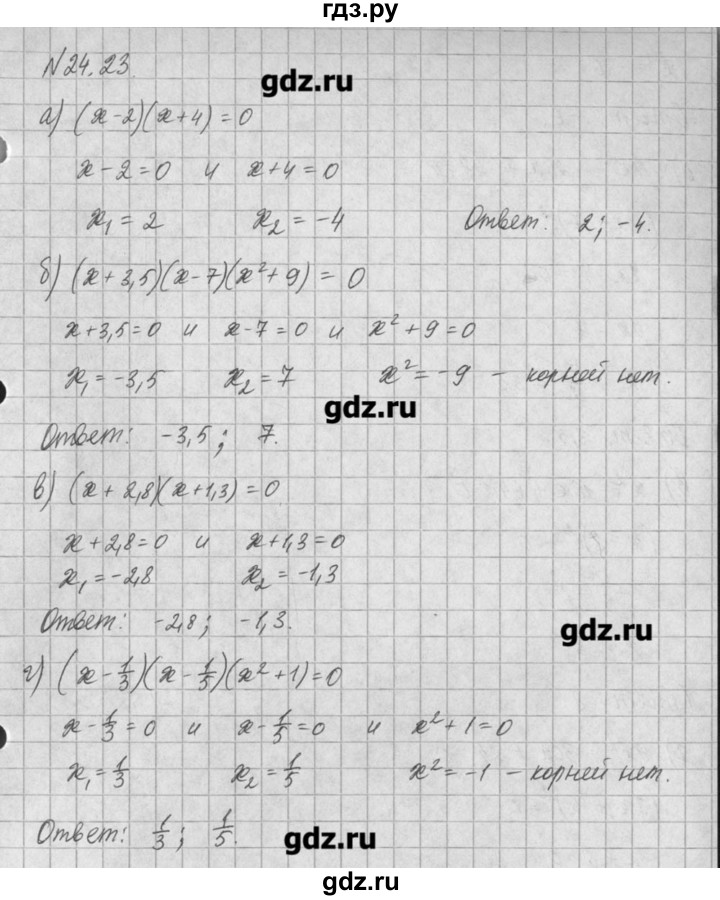 гдз.ру
№24.23.
gdz.ru
а) (x-2)(x+4)=0
x-2=0 и x+4=0
x₁=2 x₂=-4 Ответ: 2; -4.
б) (x+3,5)(x-7)(x²+9)=0
x+3,5=0 и x-7=0 и x²+9=0
x₁=-3,5 x₂=7 x²=-9 - корней нет.
gdz.ru
Ответ: -3,5; 7.
в) (x+2,8)(x+1,3)=0
x+2,8=0 и x+1,3=0
x₁=-2,8 x₂=-1,3
Ответ: -2,8; -1,3.
gdz.ru
г) (x-1/3)(x-1/5)(x²+1)=0
x-1/3=0 и x-1/5=0 и x²+1=0
x₁=1/3 x₂=1/5 x²=-1 - корней нет.
Ответ: 1/3; 1/5.
gdz.ru
gdz.ru